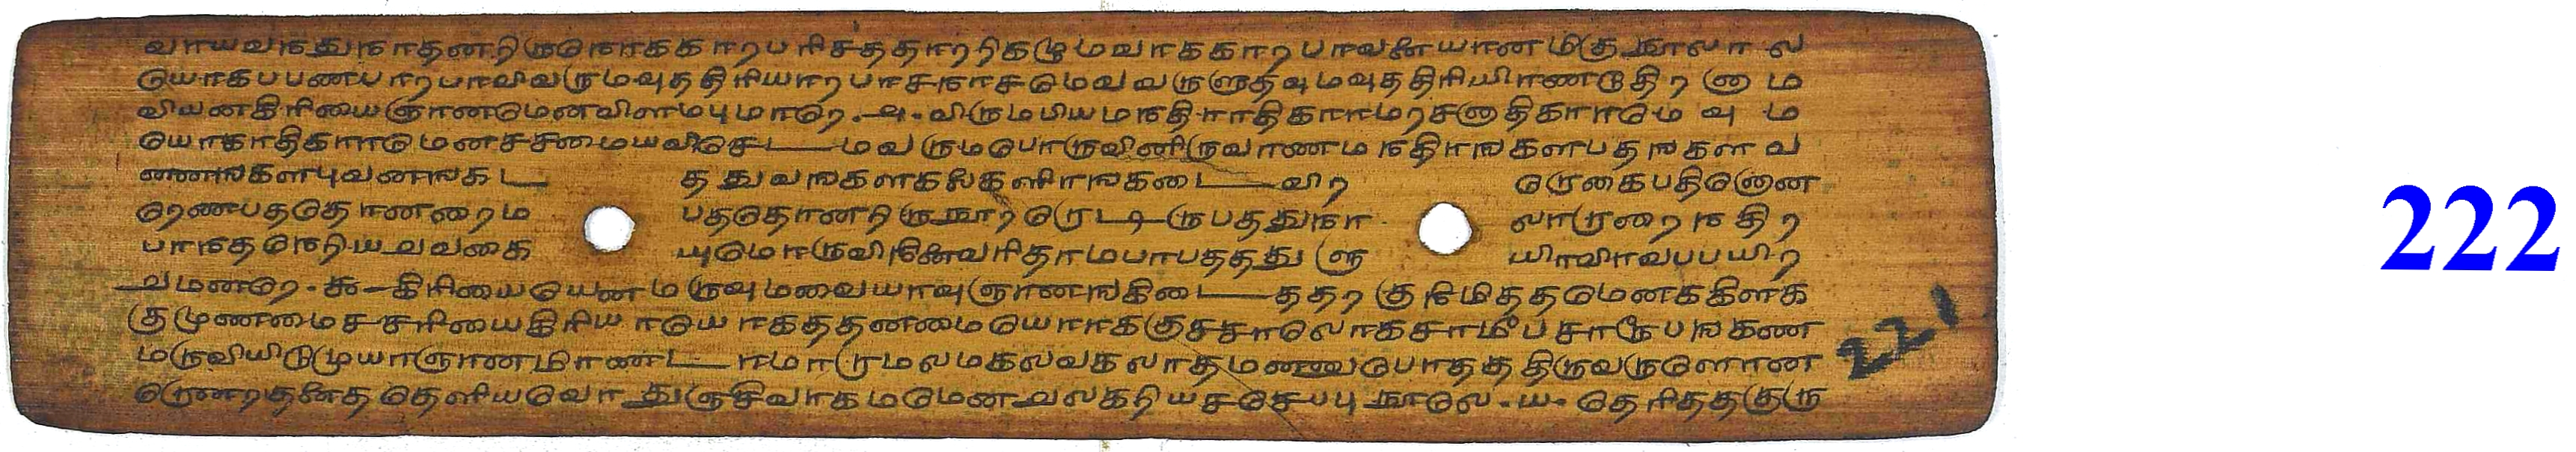 வாயவநதுநாதனறிருநொககாறபரிசததாறறிகழுமவாககாறபாவனையானமிகுநூலால
யொகபபணபாறபாவிவருமவுததிரியாறபாசநாசமெவவருளுதவுமவுததிரியிரணடுதிறனும
வியனகிரியைஞானமெனவிளமபுமாறெ.அ.விருமபியமநதிராதிகாரமரசனாதிகாரமெவும
யொகாதிகாரமெனசசமையவிசெடமவருமபொருவினிருவாணமநதிரஙகளபதஙகளவ
ணணஙகளபுவனஙகட தததுவஙகளகலைகளிரஙகடைவிற றெருகைபதினொன
றெணபததொனரைம பததொனறிருநூறறெரடடிருபததுநா லாருரைநதிற
பாநதநெரியவவகை யுமொருவினைவரிதாமபாபதததுளு யிராவிரவபபயிற
வமனறெ.௯-கிரியையெனமருவுமவையாவுஞானஙகிடைததறகுநிமிததமெனககிளக
குமுணமைசசரியைகிரியாயொகததனமையொராககுசசாலொகசாமீபசாரூபஙகண
மருவியிடுமுயாஞானமிரணடாமாருமலமகலவகலாதமணணுபொதததிருவருளொன
றொனறதனைததெளியவொதுஞசிவாகமமெனவலகரியசசெபபுநூலெ.ய.தெரிததகுரு
221
222